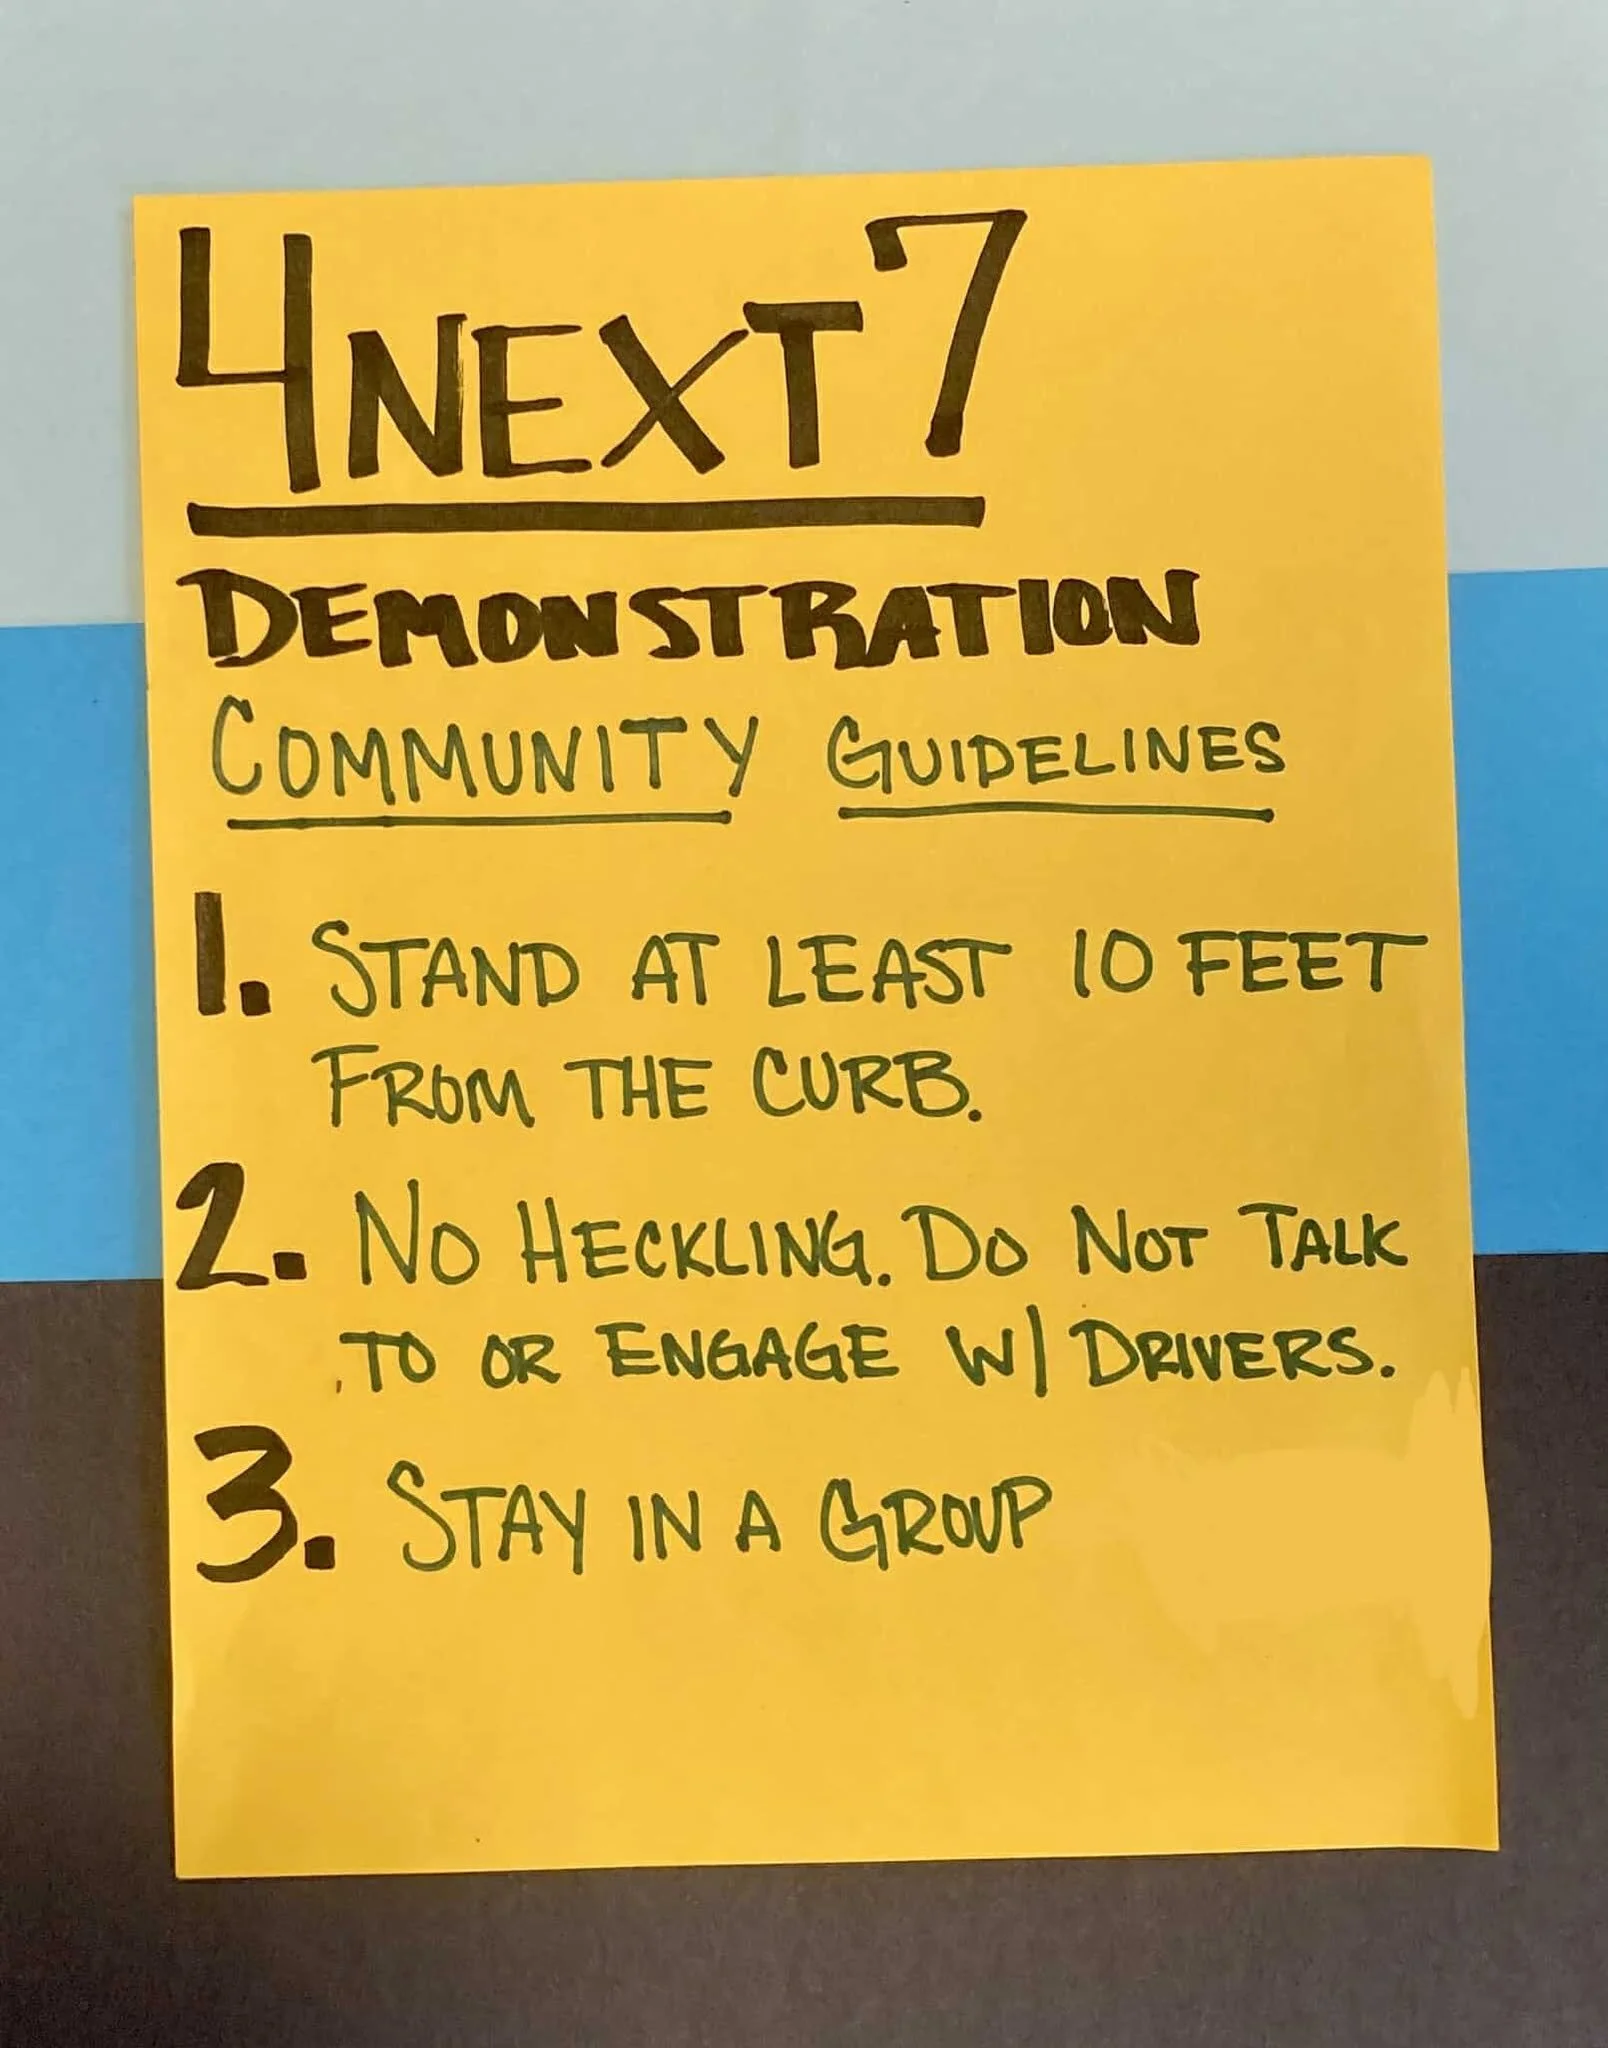 4NEXT7
DEMONSTRATION
COMMUNITY GUIDELINES
1. STAND AT LEAST 10 FEET
FROM THE CURB.
2. NO HECKLING. DO NOT TALK
TO OR ENGAGE W/ DRIVERS.
3. STAY IN A GROUP